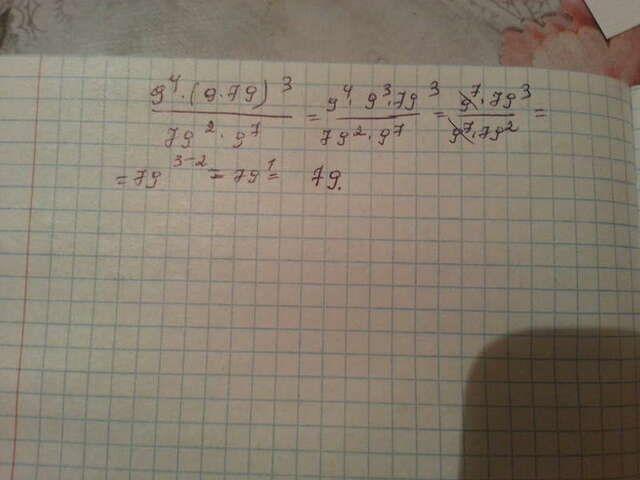 9⁴·(9·79)³ / 79²·9⁷ = 9⁴·9³·79³ / 79²·9⁷ = 9⁷·79³ / 9⁷·79² =
= 79³⁻² = 79¹ = 79.